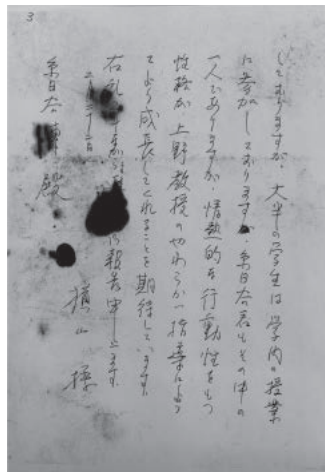 3
しておりますが、大半の学生は学内の授業
に参加しております。糸日谷君もその中の
一人でありますが、情熱的な行動性をもつ
性格が上野教授のやわらかい指導によっ
て より成長してくれることを期待しています。
右 乱 報告申上ます。
二月二十二日
横山 操
糸日谷 殿